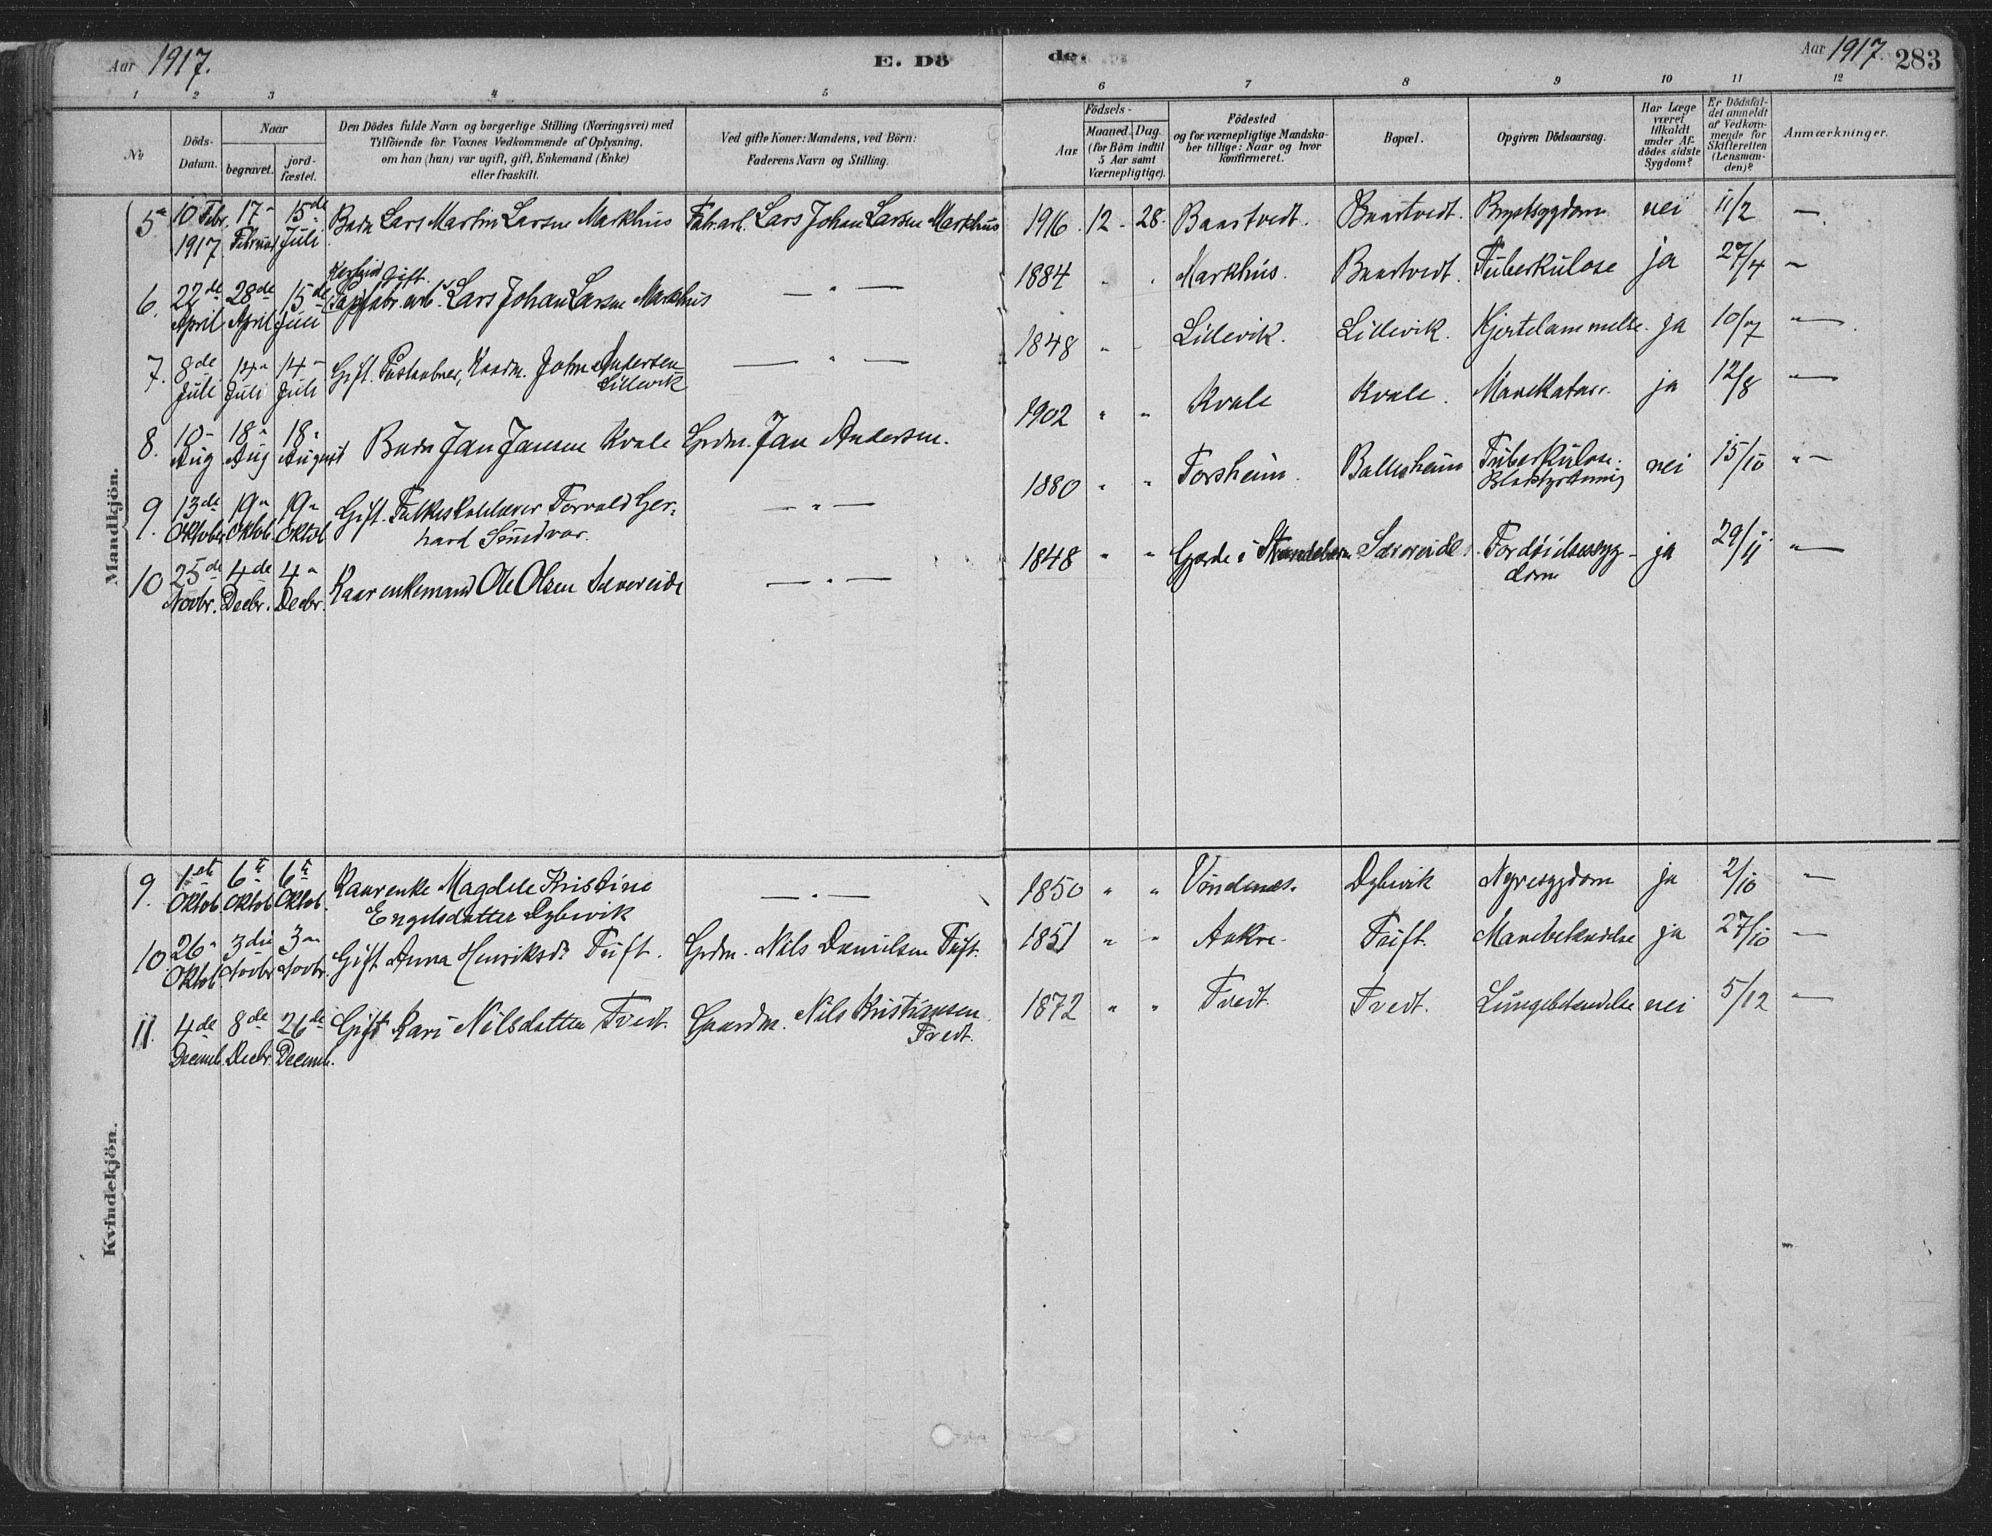 Aar 1917.
E. Dö
de.
Aar 1917.
283
1 2 3 4 5 6 7 8 9 10 11 12
No
Döds-
Datum.
Naar
begravet.
jord-
fæstet.
Den Dödes fulde Navn og borgerlige Stilling (Næringsvei) med
Tilföiende for Voxnes Vedkommende af Oplysning,
om han (hun) var ugift, gift, Enkemand (Enke)
eller fraskilt.
Ved gifte Koner: Mandens, ved Börn:
Faderens Navn og Stilling.
Födsels-
Aar
Maaned. Dag.
(for Börn indtil
5 Aar samt
Værnepligtige).
Födested
og for værnepligtige Mandska-
ber tillige: Naar og hvor
konfirmeret.
Bopæl.
Opgiven Dödsaarsag.
Har Læge
været
tilkaldt
under Af-
dödes sidste
Sygdom?
Er Dödsfal-
det anmeldt
af Vedkom-
mende for
Skifteretten
(Lensman-
den)?
Anmærkninger.
Mandkjön.
5 10 Febr. 17 15de Barn Lars Martin Larsen Markhus Fabr.arb. Lars Johan Larsen Markhus 1916 12 28 Baartvedt. Baartvedt. Brystsygdom nei 11/2 —
1917 Februar Juli
Gift.
6. 22de 28de 15de Lars Johan Larsen Markhus — " — 1884 " " Markhus. Baartvedt. Tuberkulose ja 27/4 —
April April Juli
7. 8de 14 14 Gift. Postaabner, Kaarm. John Andersen — " — 1848 " Lillevik. Lillevik. Hjertelammelse. ja 10/7 "—
Juli Juli Juli Lillevik
8. 10 18 18 Barn Jan Jansen Kvale Grdm. Jan Andersen. 1902 " " Kvale Kvale. Mavekatarr. ja 12/8 "—
Aug Aug August
9. 13de 19 19 Gift. Folkeskolelærer Torvald Ger- — " — 1880 " " Forsheim. Ballesheim Tuberkulose. nei 15/10 "—
Oktober Oktob Oktob hard Sundvor. Blodstyrtning
10 25de 4de 4 Kaarenkemand Ole Olsen Sævereide — " — 1848 " " Gjerde i Strandebarm Sævereide. Fordøielsessyg- ja 29/11 "—
Novbr. Decbr. Decbr. dom
Kvindekjön.
9. 1ste 6te 6te Kaarenke Magdele Kristine — " — 1850 " " Vondenæs. Dybevik Nyresygdom ja 2/10 "—
Oktob. Oktob Oktob. Engelsdatter Dybevik
10 26 3die 3 Gift Anna Henriksdr Tuft. Grdm. Nils Danielsen Tuft. 1851 " " Aakre. Tuft. Mavebetændelse ja 27/10 "—
Oktob Novbr Novbr.
11. 4de 8de 26de Gift Kari Nilsdatter Tvedt. Gaardm. Nils Kristiansen 1872 " " Tvedt. Tvedt. Lungebetændelse nei 5/12 "—
Decemb. Decbr. Decemb. Tvedt.